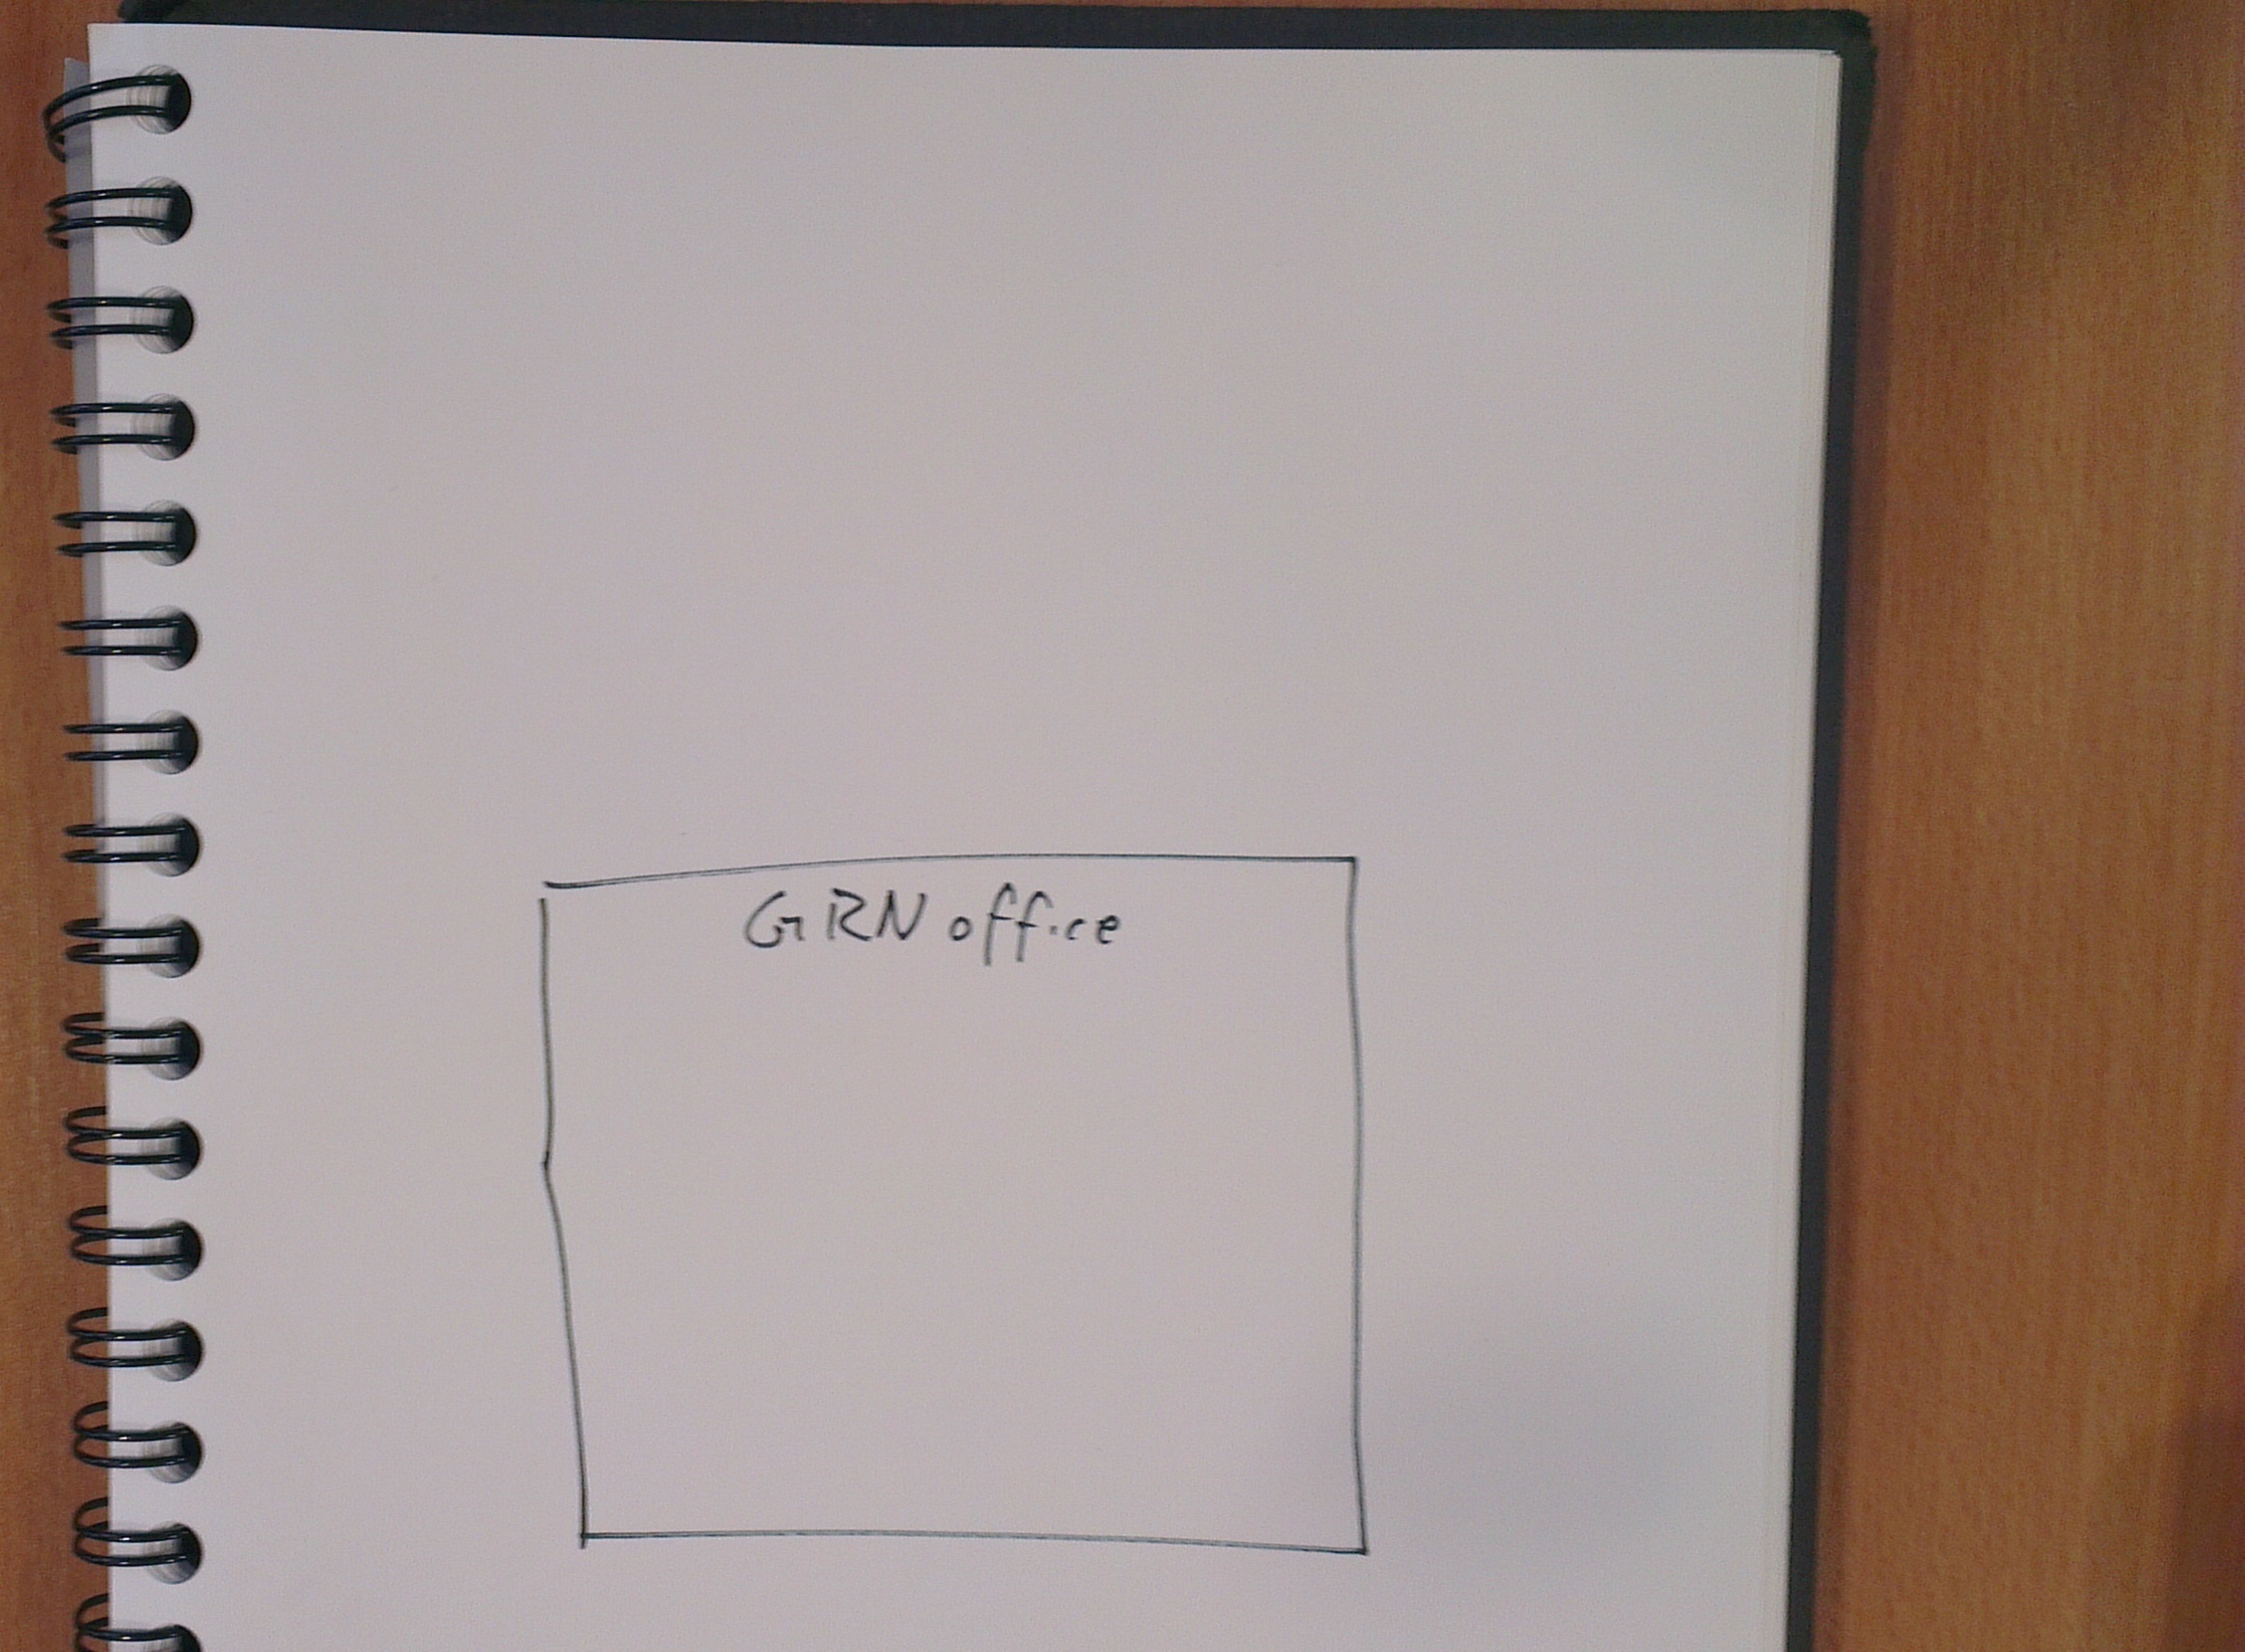 GRN office